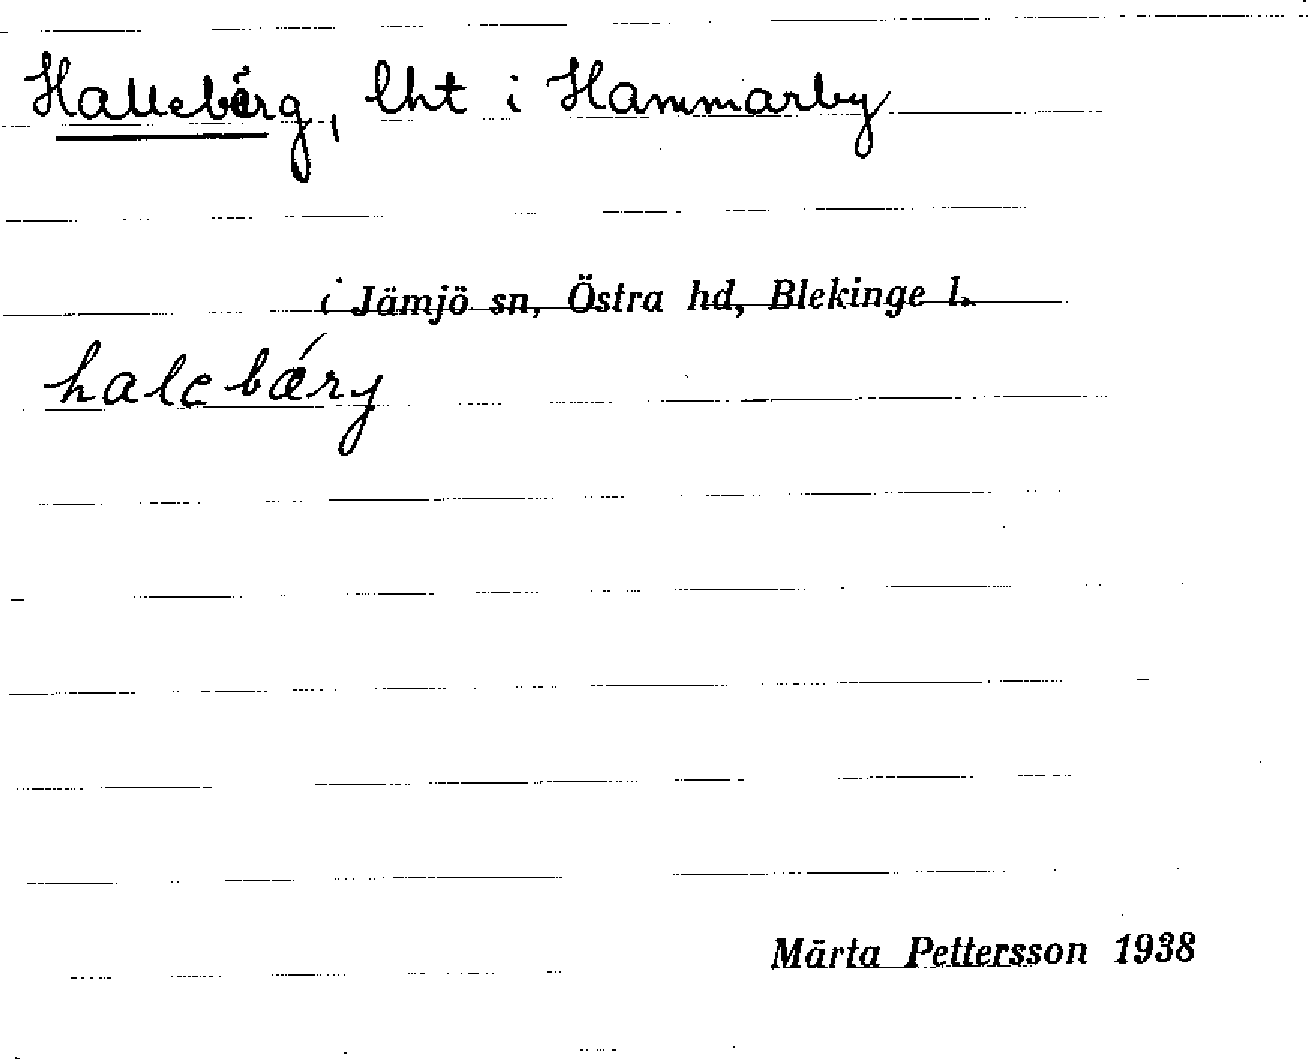 Halleberg, lht i Hammarby
i Jämjö sn, Östra hd, Blekinge l.
halebǽrj
Märta Pettersson 1938